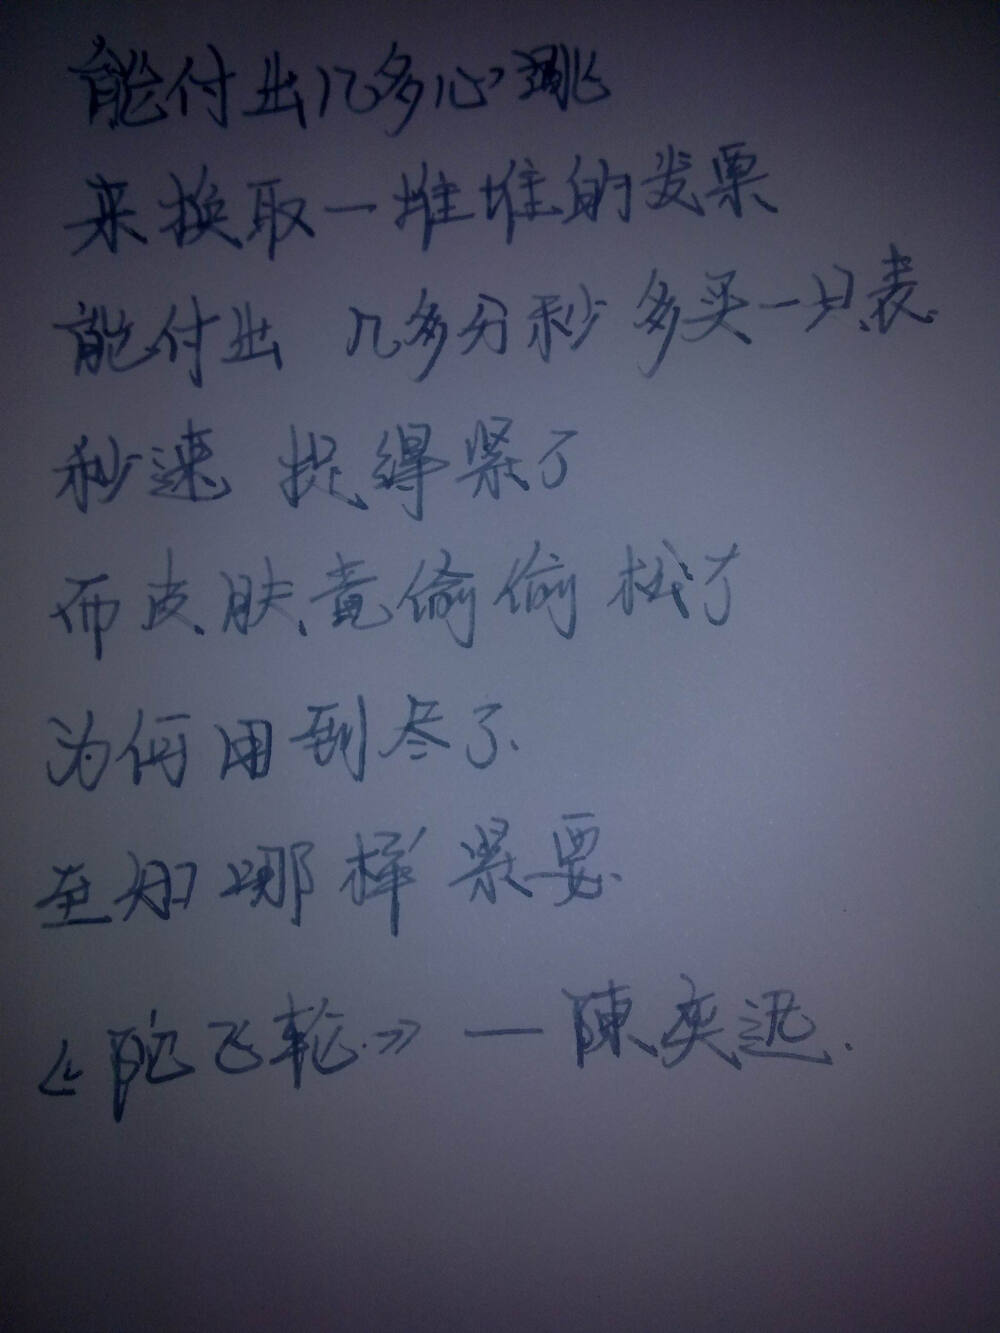 能付出几多心跳
来换取一堆堆的发票
能付出 几多分秒 多买一只表
秒速 捉得紧了
而皮肤竟偷偷 松了
为何用到尽了
至知哪样紧要
《陀飞轮》—陳奕迅.